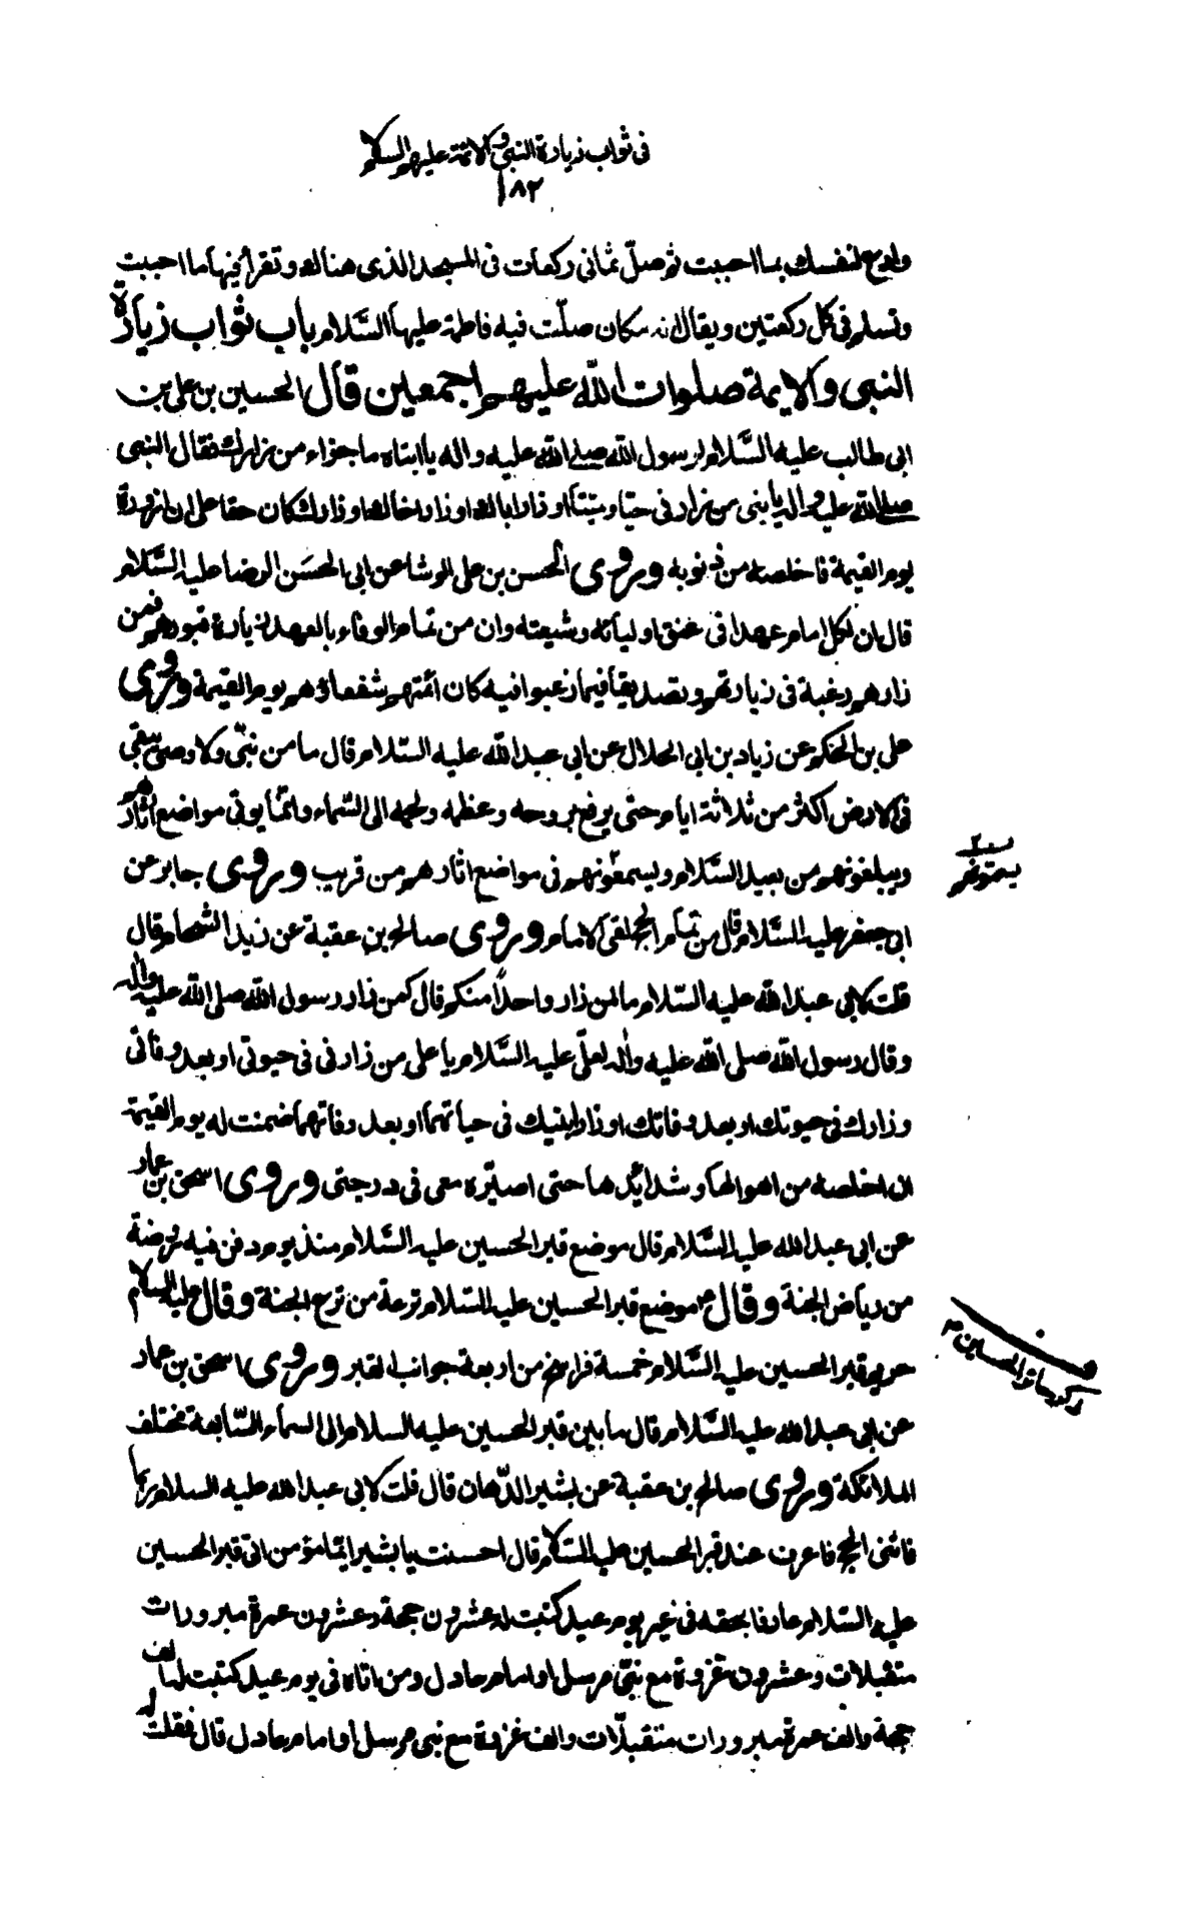 فى ثواب زيارة النبى والائمة عليهم السلام
١٨٢
وادع لنفسك بما احببت ثم صلّ ثمانى ركعات فى المسجد الذى هناك وتقرأ فيها ما احببت
وتسلم فى كل ركعتين ويقال انه مكان صلّت فيه فاطمة عليها السَّلام باب ثواب زيارة
النبى والايمة صلوات اللّه عليهم اجمعين قال الحسين بن على بن
ابى طالب عليه السَّلام لرسول اللّه صلى اللّه عليه واله يا ابتاه ما جزاء من زارك فقال النبى
صلى اللّه عليه واله يا بنى من زارنى حيّا وميّتاً او زار اباك او زار اخاك او زارك كان حقا على ان ازوره
يوم القيمة فاخلصه من ذنوبه وروى الحسن بن على الوشا عن ابى الحسَن الرضا عليه السَّلام
قال ان لكل امام عهدا فى عنق اوليائه وشيعته وان من تمام الوفاء بالعهد زيارة قبورهم فمن
زارهم رغبة فى زيارتهم وتصديقاً فيما رغبوا فيه كان ائمتهم شفعاؤهم يوم القيمة وروى
على بن الحكم عن زياد بن ابى الحلال عن ابى عبد اللّه عليه السّلام قال ما من نبىّ ولا وصى يبقى
فى الارض اكثر من ثلاثة ايام حتى يرفع بروحه وعظمه ولحمه الى السّماء وانّما يوتى مواضع اثارهم
ويبلغونهم من بعيد السَّلام ويسمعونهم فى مواضع اثارهم من قريب وروى جابر عن
يسمعونهم
ابى جعفر عليه السَّلام قال من تمام الحج لقى الامام وروى صالح بن عقبة عن زيد الشحام قال
قلت لابى عبد اللّه عليه السّلام ما لمن زار واحداً منكم قال كمن زار رسول اللّه صلى اللّه عليه واله
وقال رسول اللّه صلى اللّه عليه واله لعلىّ عليه السَّلام يا على من زارنى فى حيوتى او بعد وفاتى
وزارك فى حيوتك او بعد وفاتك او زار ابنيك فى حياتهما او بعد وفاتهما ضمنت له يوم القيمة
ان اخلصه من اهوالها وشدائدها حتى اصيّره معى فى درجتى وروى اسحق بن عمار
عن ابى عبد الله عليه السَّلام قال موضع قبر الحسين عليه السَّلام منذ يوم دفن فيه روضة
من رياض الجنة وقال ع موضع قبر الحسين عليه السّلام ترعة من ترع الجنة وقال عليه السلام
حريم قبر الحسين عليه السَّلام خمسة فراسخ من اربعة جوانب القبر وروى اسحق بن عمار
عن ابى عبد الله عليه السَّلام قال ما بين قبر الحسين عليه السلام الى السماء السّابعة مختلف
الملائكة وروى صالح بن عقبة عن بشير الدّهان قال قلت لابى عبد الله عليه السلام ربما
فاتنى الحج فاعرف عند قبر الحسين عليه السّلام قال احسنت يا بشير ايّما مؤمن اتى قبر الحسين
عليه السّلام عارفا بحقه فى غير يوم عيد كتبت له عشرون حجة وعشرون عمرة مبرورات
متقبلات وعشرون غزوة مع نبىّ مرسل او امام عادل ومن اتاه فى يوم عيد كتبت له الف
حجة والف عمرة مبرورات متقبلّات والف غزوة مع نبى مرسل أو امام عادل قال فقلت له